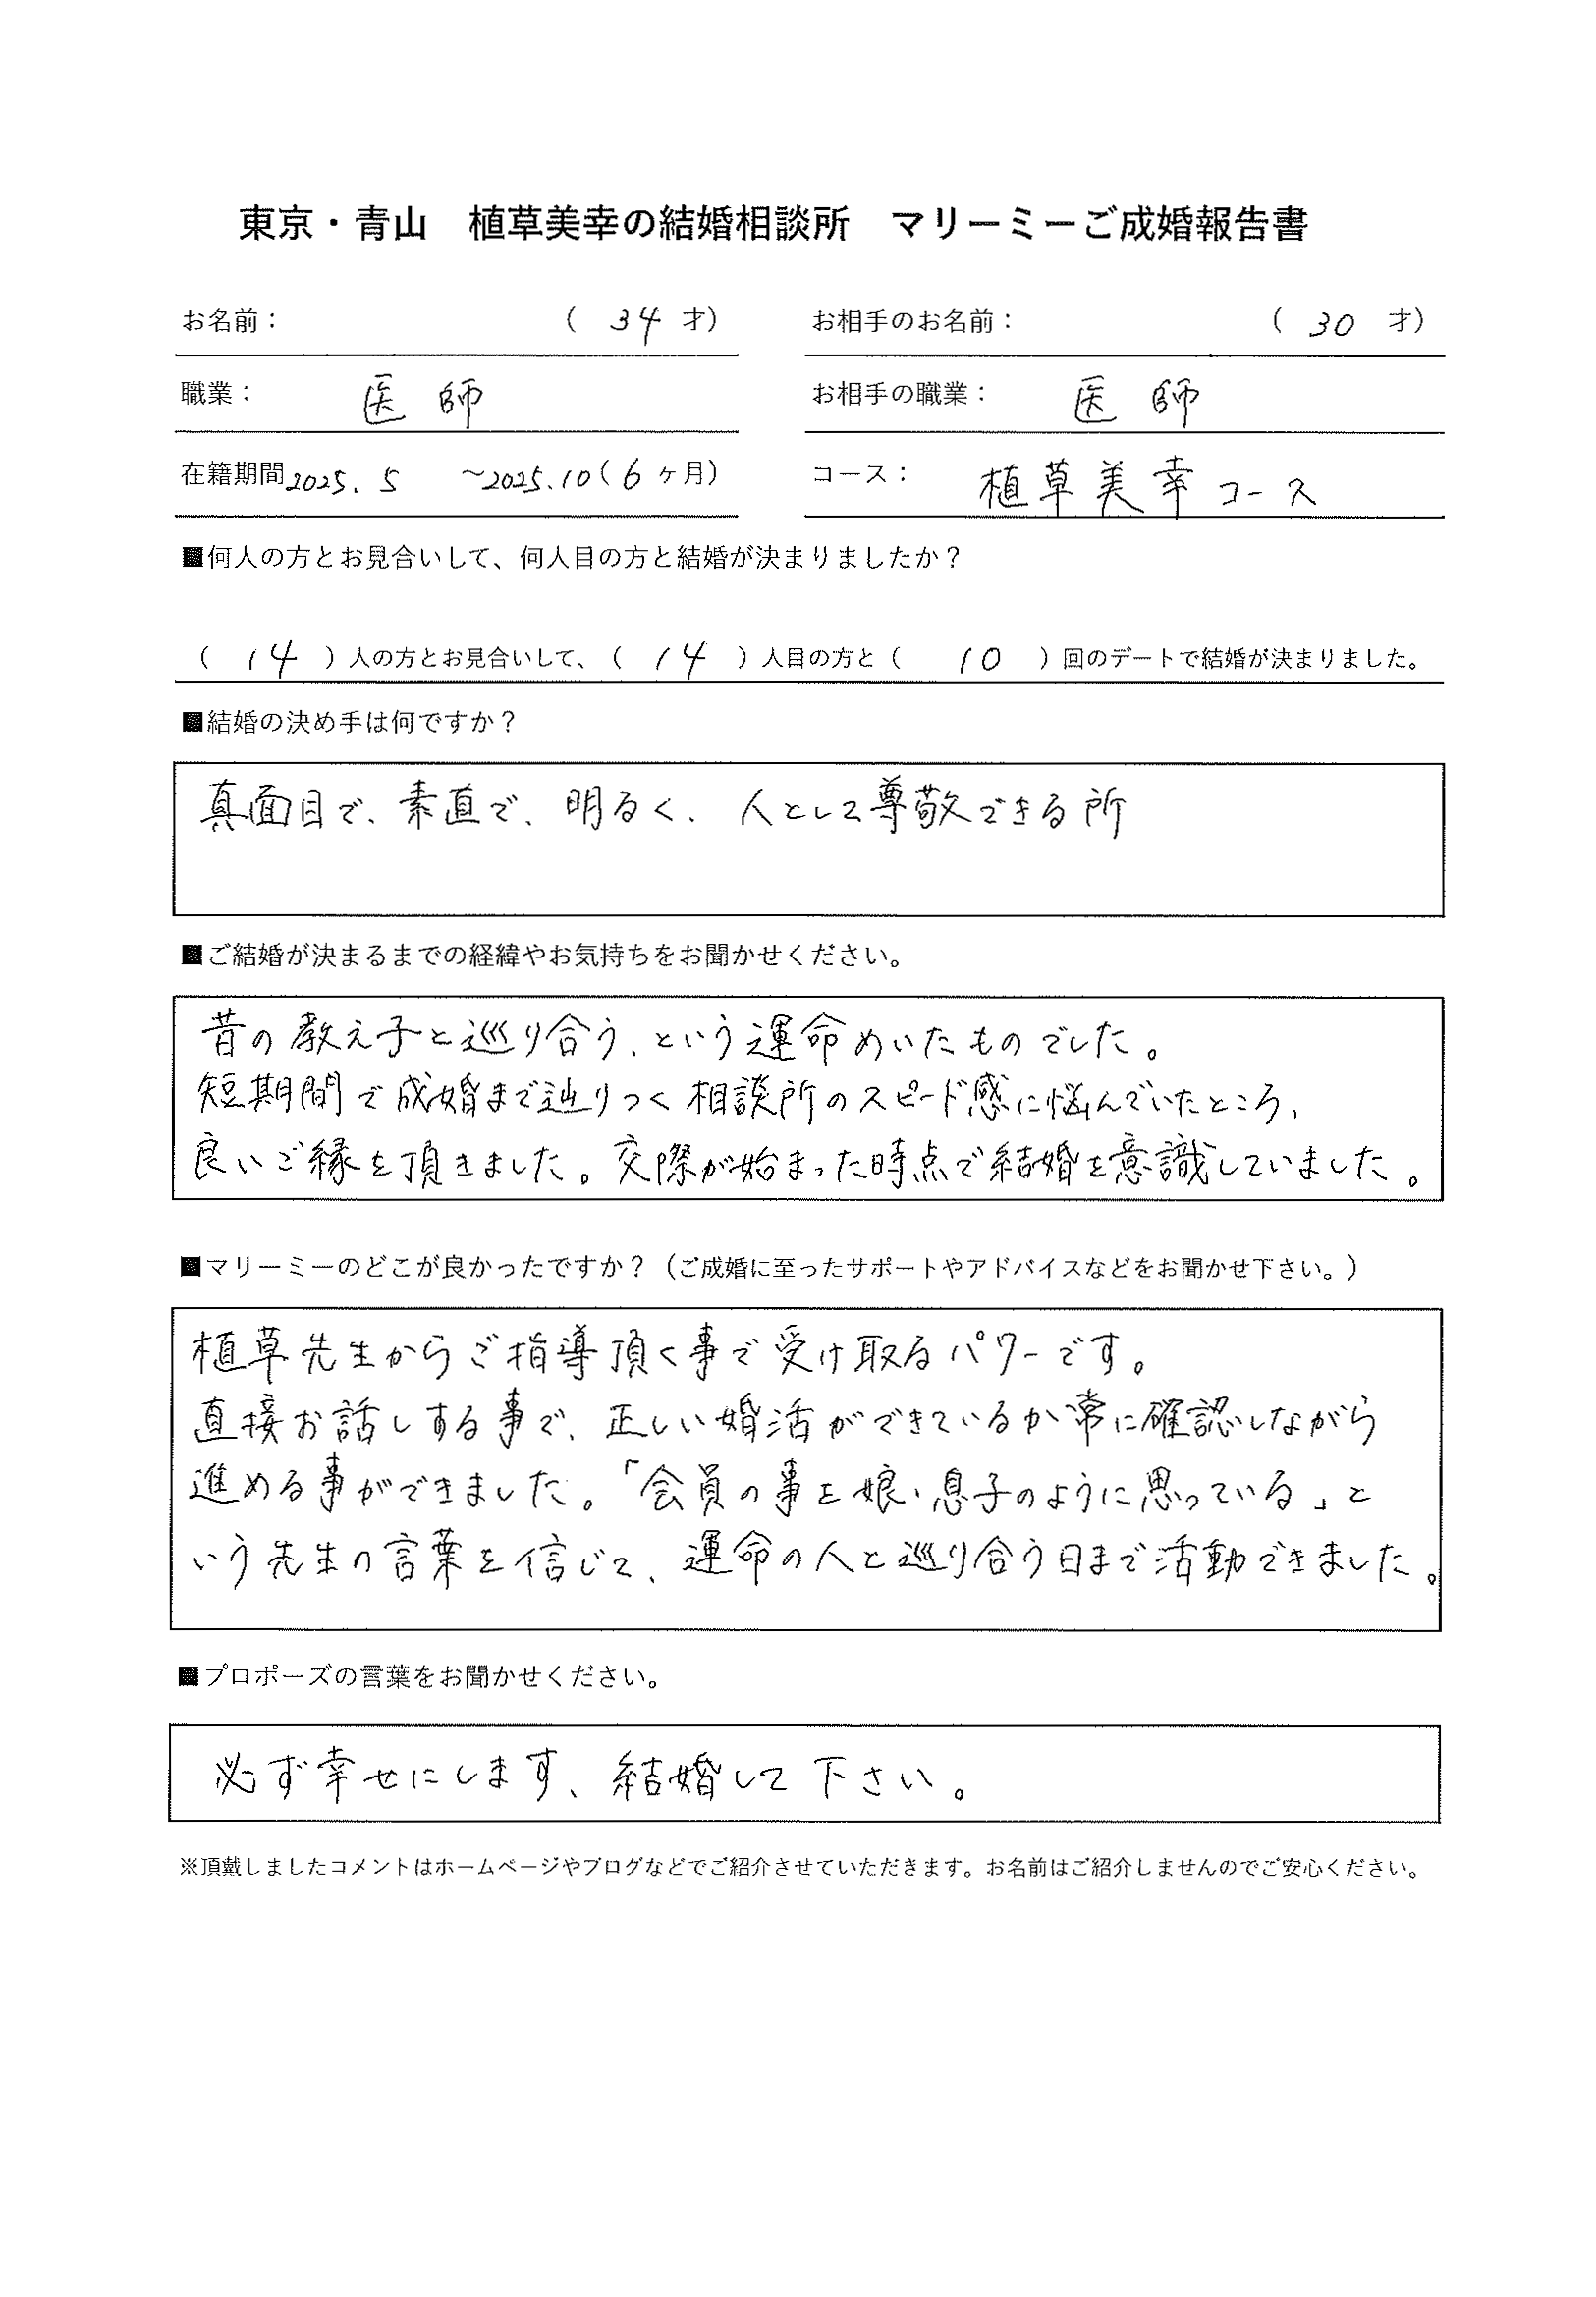 東京・青山　植草美幸の結婚相談所　マリーミーご成婚報告書
お名前：　（ 34 才）　お相手のお名前：　（ 30 才）
職業：　医師　お相手の職業：　医師
在籍期間2025.5 ～2025.10（6ヶ月）　コース：　植草美幸コース
■何人の方とお見合いして、何人目の方と結婚が決まりましたか？
（ 14 ）人の方とお見合いして、（ 14 ）人目の方と（ 10 ）回のデートで結婚が決まりました。
■結婚の決め手は何ですか？
真面目で、素直で、明るく、人として尊敬できる所
■ご結婚が決まるまでの経緯やお気持ちをお聞かせください。
昔の教え子と巡り合う、という運命めいたものでした。
短期間で成婚まで辿りつく相談所のスピード感に悩んでいたところ、
良いご縁を頂きました。交際が始まった時点で結婚を意識していました。
■マリーミーのどこが良かったですか？（ご成婚に至ったサポートやアドバイスなどをお聞かせ下さい。）
植草先生からご指導頂く事で受け取るパワーです。
直接お話しする事で、正しい婚活ができているか常に確認しながら
進める事ができました。「会員の事を娘・息子のように思っている」と
いう先生の言葉を信じて、運命の人と巡り合う日まで活動できました。
■プロポーズの言葉をお聞かせください。
必ず幸せにします、結婚して下さい。
※頂戴しましたコメントはホームページやブログなどでご紹介させていただきます。お名前はご紹介しませんのでご安心ください。